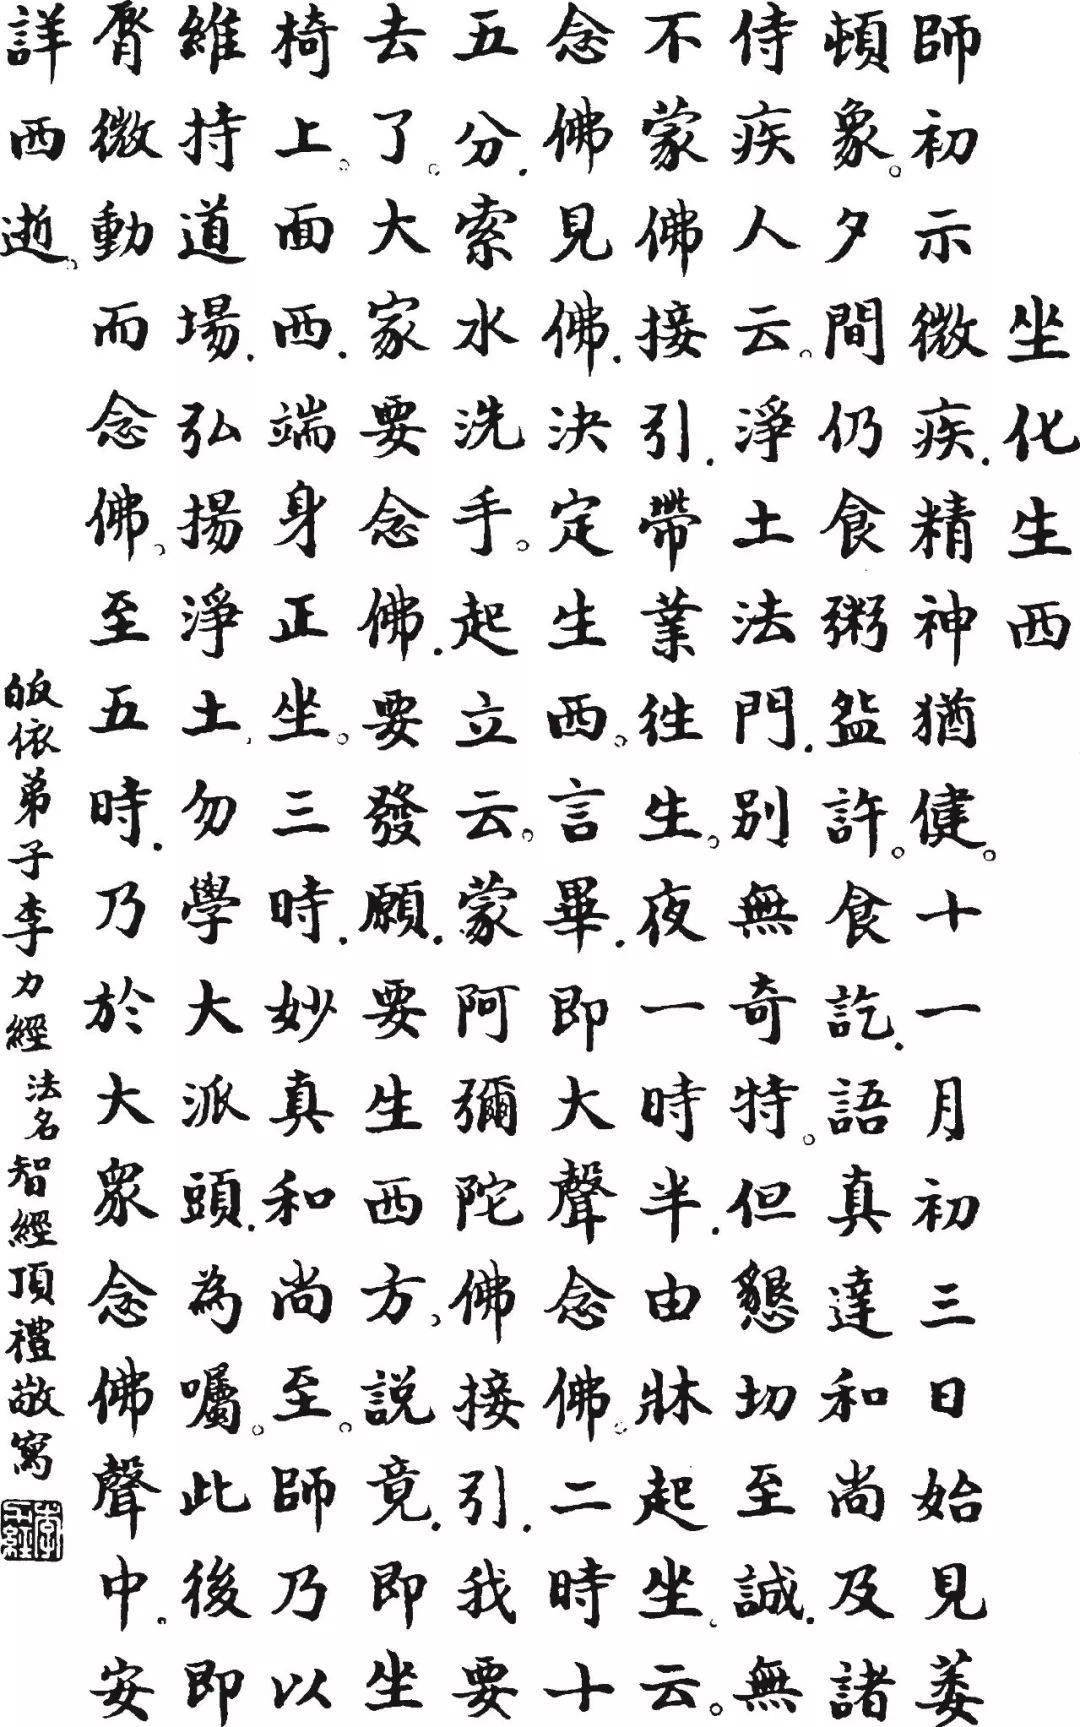 坐化生西
師初示微疾.精神猶健。十一月初三日始見萎
頓象。夕間仍食粥盌許。食訖.語真達和尚及諸
侍疾人云。淨土法門.別無奇特。但懇切至誠.無
不蒙佛接引.帶業往生。夜一時半.由牀起坐。云。
念佛見佛.決定生西。言畢.即大聲念佛。二時十
五分.索水洗手。起立云。蒙阿彌陀佛接引.我要
去了。大家要念佛.要發願.要生西方、說竟.即坐
椅上。面西.端身正坐。三時.妙真和尚至。師乃以
維持道場.弘揚淨土、勿學大派頭.為囑。此後即
脣微動而念佛。至五時.乃於大眾念佛聲中。安
詳西逝。
皈依弟子李力經法名智經頂禮敬寫